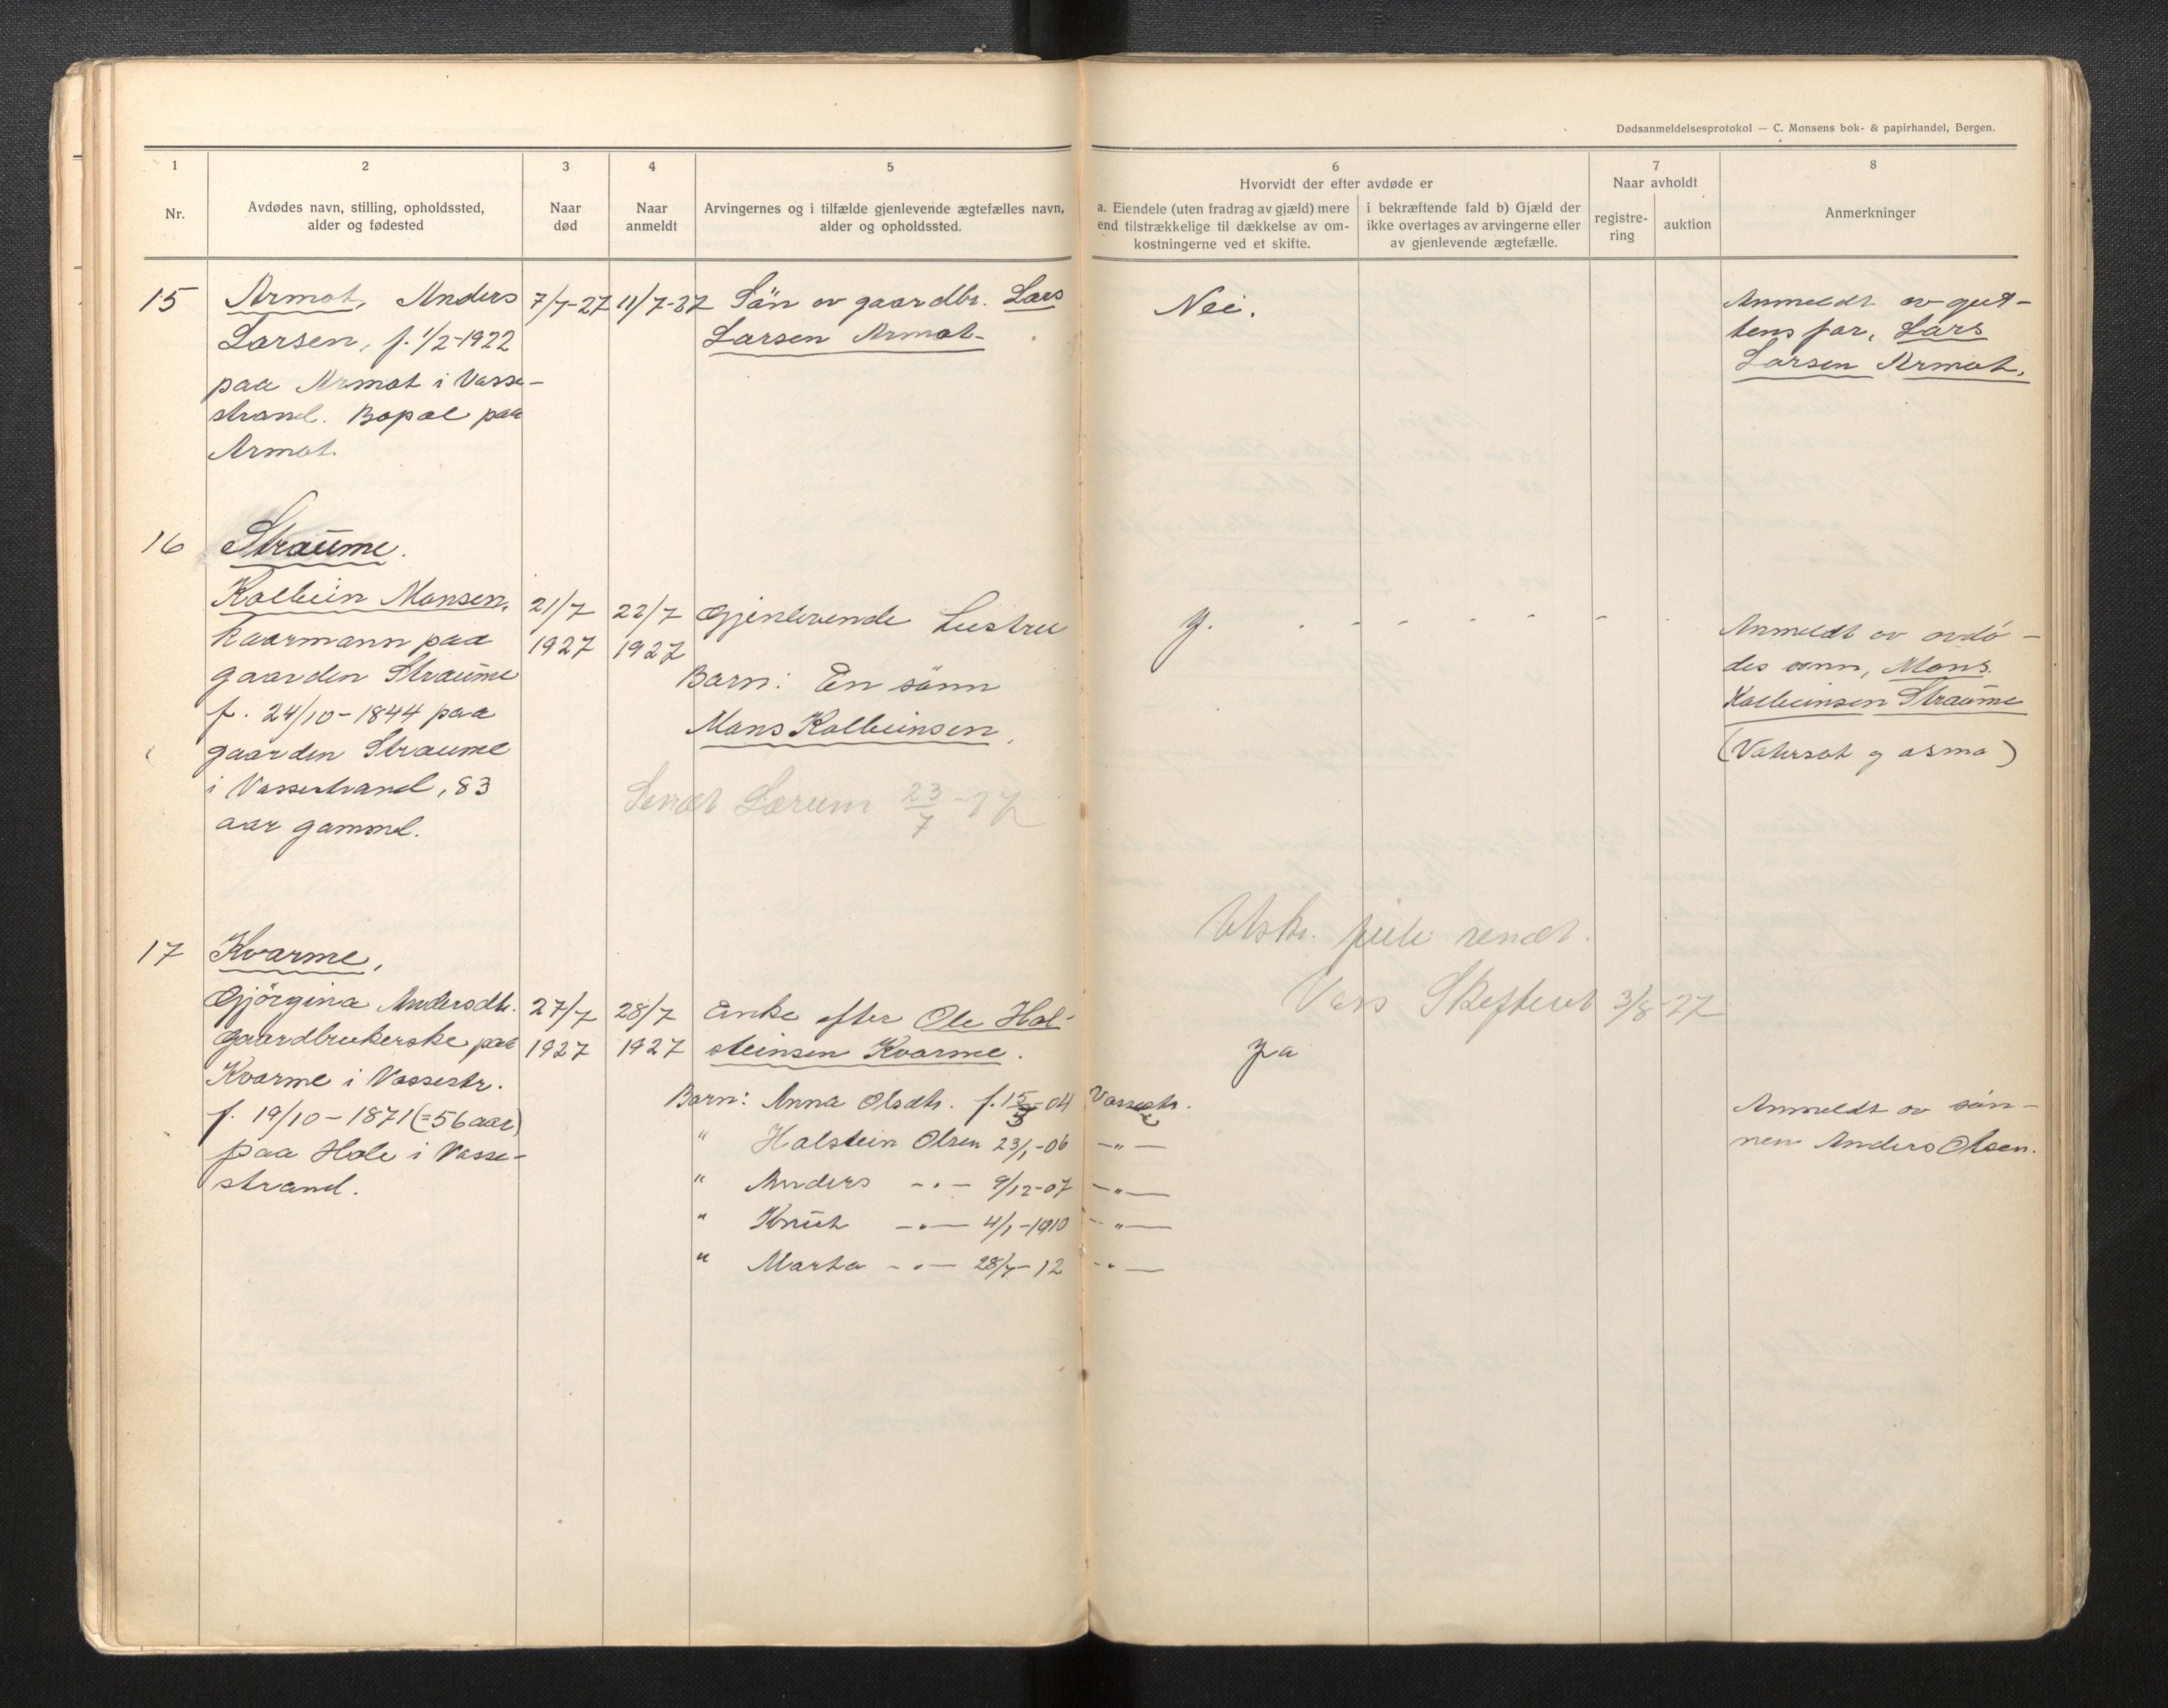 Dødsanmeldelsesprotokol — C. Monsens bok- & papirhandel, Bergen.
1
2
3
4
5
6
7
8
Nr.
Avdødes navn, stilling, opholdssted,
alder og fødested
Naar
død
Naar
anmeldt
Arvingernes og i tilfælde gjenlevende ægtefælles navn,
alder og opholdssted.
Hvorvidt der efter avdøde er
a. Eiendele (uten fradrag av gjæld) mere
end tilstrækkelige til dækkelse av om-
kostningerne ved et skifte.
i bekræftende fald b) Gjæld der
ikke overtages av arvingerne eller
av gjenlevende ægtefælle.
Naar avholdt
registre-
ring
auktion
Anmerkninger
15
Armot, Anders
Larsen, f. 1/2-1922
paa Armot i Vasse-
strand. Bopæl paa
Armot.
7/7-27
11/7-27
Sön av gaardbr. Lars
Larsen Armot-
Nei.
Anmeldt av gut-
tens far, Lars
Larsen Armot.
16
Straume.
Kolbein Monsen,
kaarmann paa
gaarden Straume
f. 24/10-1844 paa
gaarden Straume
i Vassestrand, 83
aar gammel.
21/7
1927
22/7
1927
Gjenlevende hustru
Barn: En sönn
Mons Kolbeinsen.
Sendt Lærum 23/7-27
Anmeldt av avdö-
des sönn, Mons
Kolbeinsen Straume
(Vatersot og asma)
17
Kvarme,
Gjörgina Andersdtr.
gaardbrukerske paa
Kvarme i Vassestr.
f. 19/10-1871 (=56 aar)
paa Hole i Vasse-
strand.
27/7
1927
28/7
1927
Enke efter Ole Hol-
steinsen Kvarme.
Barn: Anna Olsdtr. f. 15/5-04 Vassestr.
" Holstein Olsen 23/1-06 —"—
" Anders —"— 9/12-07 —"—
" Knut —"— 4/1-1910 —"—
" Marta —"— 28/7-12 —"—
Utskr. sendt.
Vass Skifteret 3/8-27
Ja
Anmeldt av sön-
nen Anders Olsen.